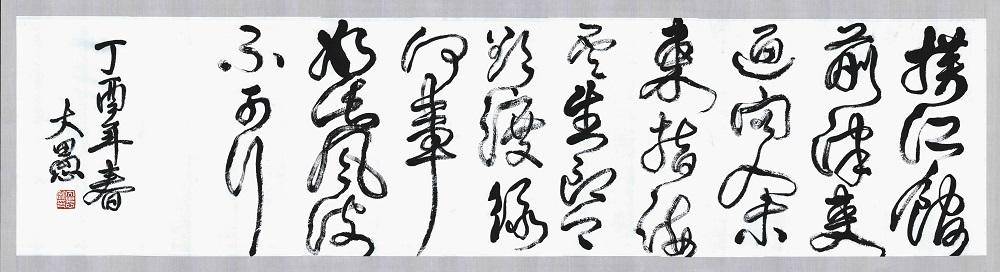 橫江館
前津吏
迎向余
東指海
雲生郎今
欲渡緣
何事
如此風波
不可行
丁酉年春
大愚